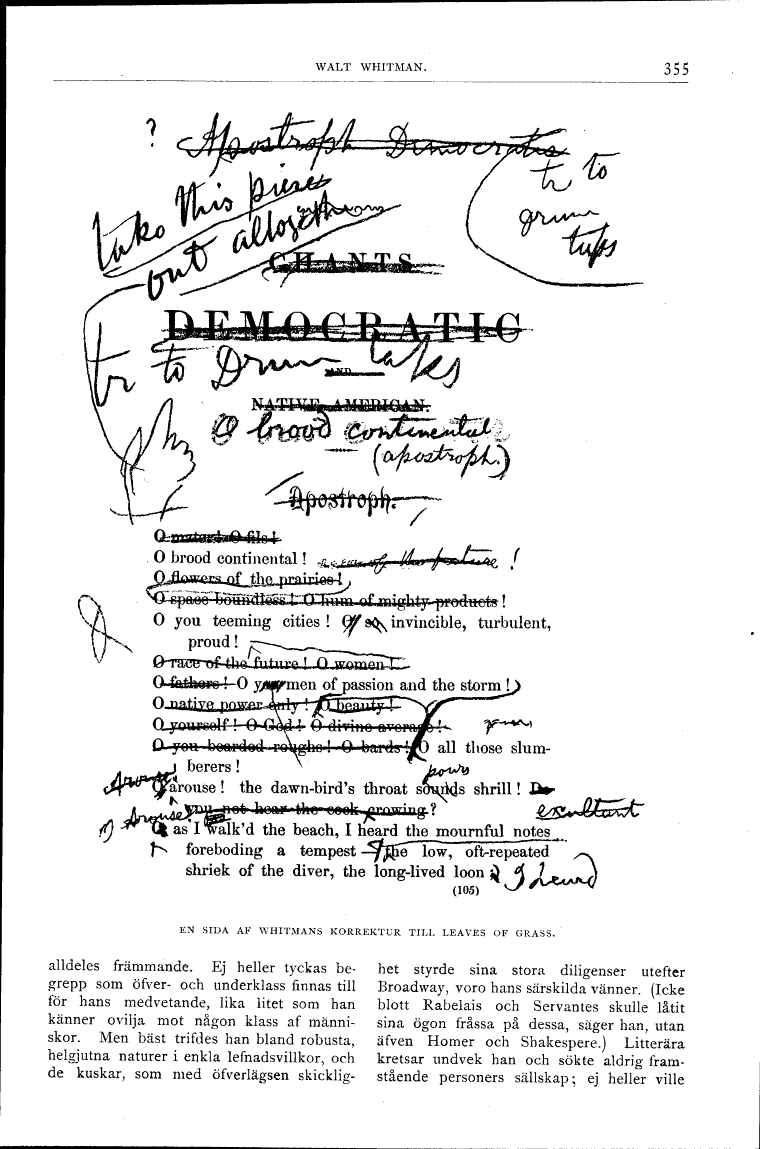 WALT WHITMAN.
355
?
Apostroph Democratic
take this piece
out altogether
tr to
drum
taps
CHANTS
DEMOCRATIC
tr to Drum taps
AND
NATIVE AMERICAN.
O brood continental
(apostroph.)
Apostroph.
O mater! O fils!
O brood continental! !
O flowers of the prairies!
O space boundless! O hum of mighty products!
O you teeming cities! O so invincible, turbulent,
proud!
O race of the future! O women!
O fathers! O you men of passion and the storm!
O native power only! O beauty!
O yourself! O God! O divine average!
O you bearded roughs! O bards! O all those slum-
berers!
pours
Arouse
O arouse! the dawn-bird's throat sounds shrill! Do
you not hear the cock crowing?
exultant
Arouse!
O as I walk'd the beach, I heard the mournful notes
foreboding a tempest—the low, oft-repeated
shriek of the diver, the long-lived loon
I heard
(105)
EN SIDA AF WHITMANS KORREKTUR TILL LEAVES OF GRASS.
alldeles främmande. Ej heller tyckas be-
grepp som öfver- och underklass finnas till
för hans medvetande, lika litet som han
känner ovilja mot någon klass af männi-
skor. Men bäst trifdes han bland robusta,
helgjutna naturer i enkla lefnadsvillkor, och
de kuskar, som med öfverlägsen skicklig-
het styrde sina stora diligenser utefter
Broadway, voro hans särskilda vänner. (Icke
blott Rabelais och Servantes skulle låtit
sina ögon fråssa på dessa, säger han, utan
äfven Homer och Shakespere.) Litterära
kretsar undvek han och sökte aldrig fram-
stående personers sällskap; ej heller ville